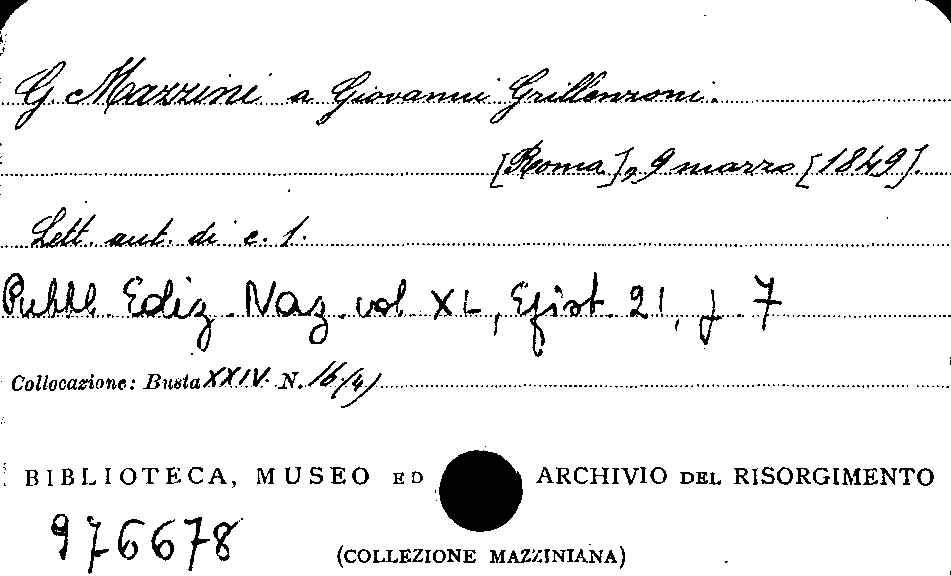 G. Mazzini a Giovanni Grillenzoni.
[Roma], 9 marzo [1849].
Lett. aut. di c. 1.
Pubbl. Ediz. Naz. vol XL, Epist. 21, p. 7
Collocazione: Busta XXIV. N. 16/(4)
BIBLIOTECA, MUSEO ED ARCHIVIO DEL RISORGIMENTO
976678
(COLLEZIONE MAZZINIANA)